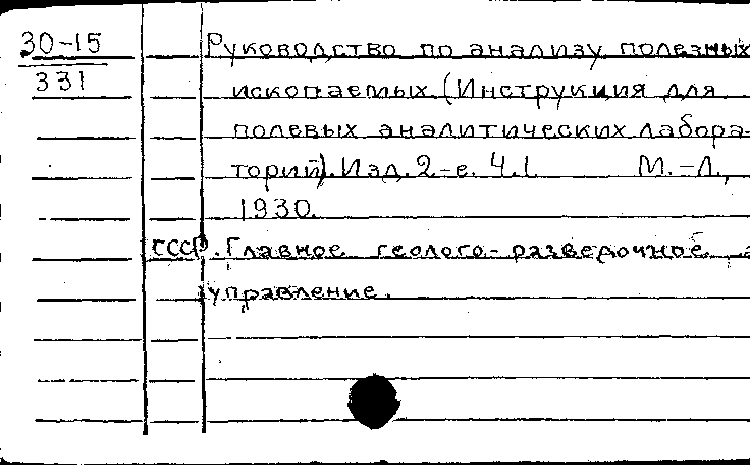 30-15
331
Руководство по анализу полезных
ископаемых (Инструкция для
полевых аналитических лабора-
торий). Изд. 2-е. Ч.1 М.-Л.,
1930.
СССР. Главное геолого-разведочное
управление.